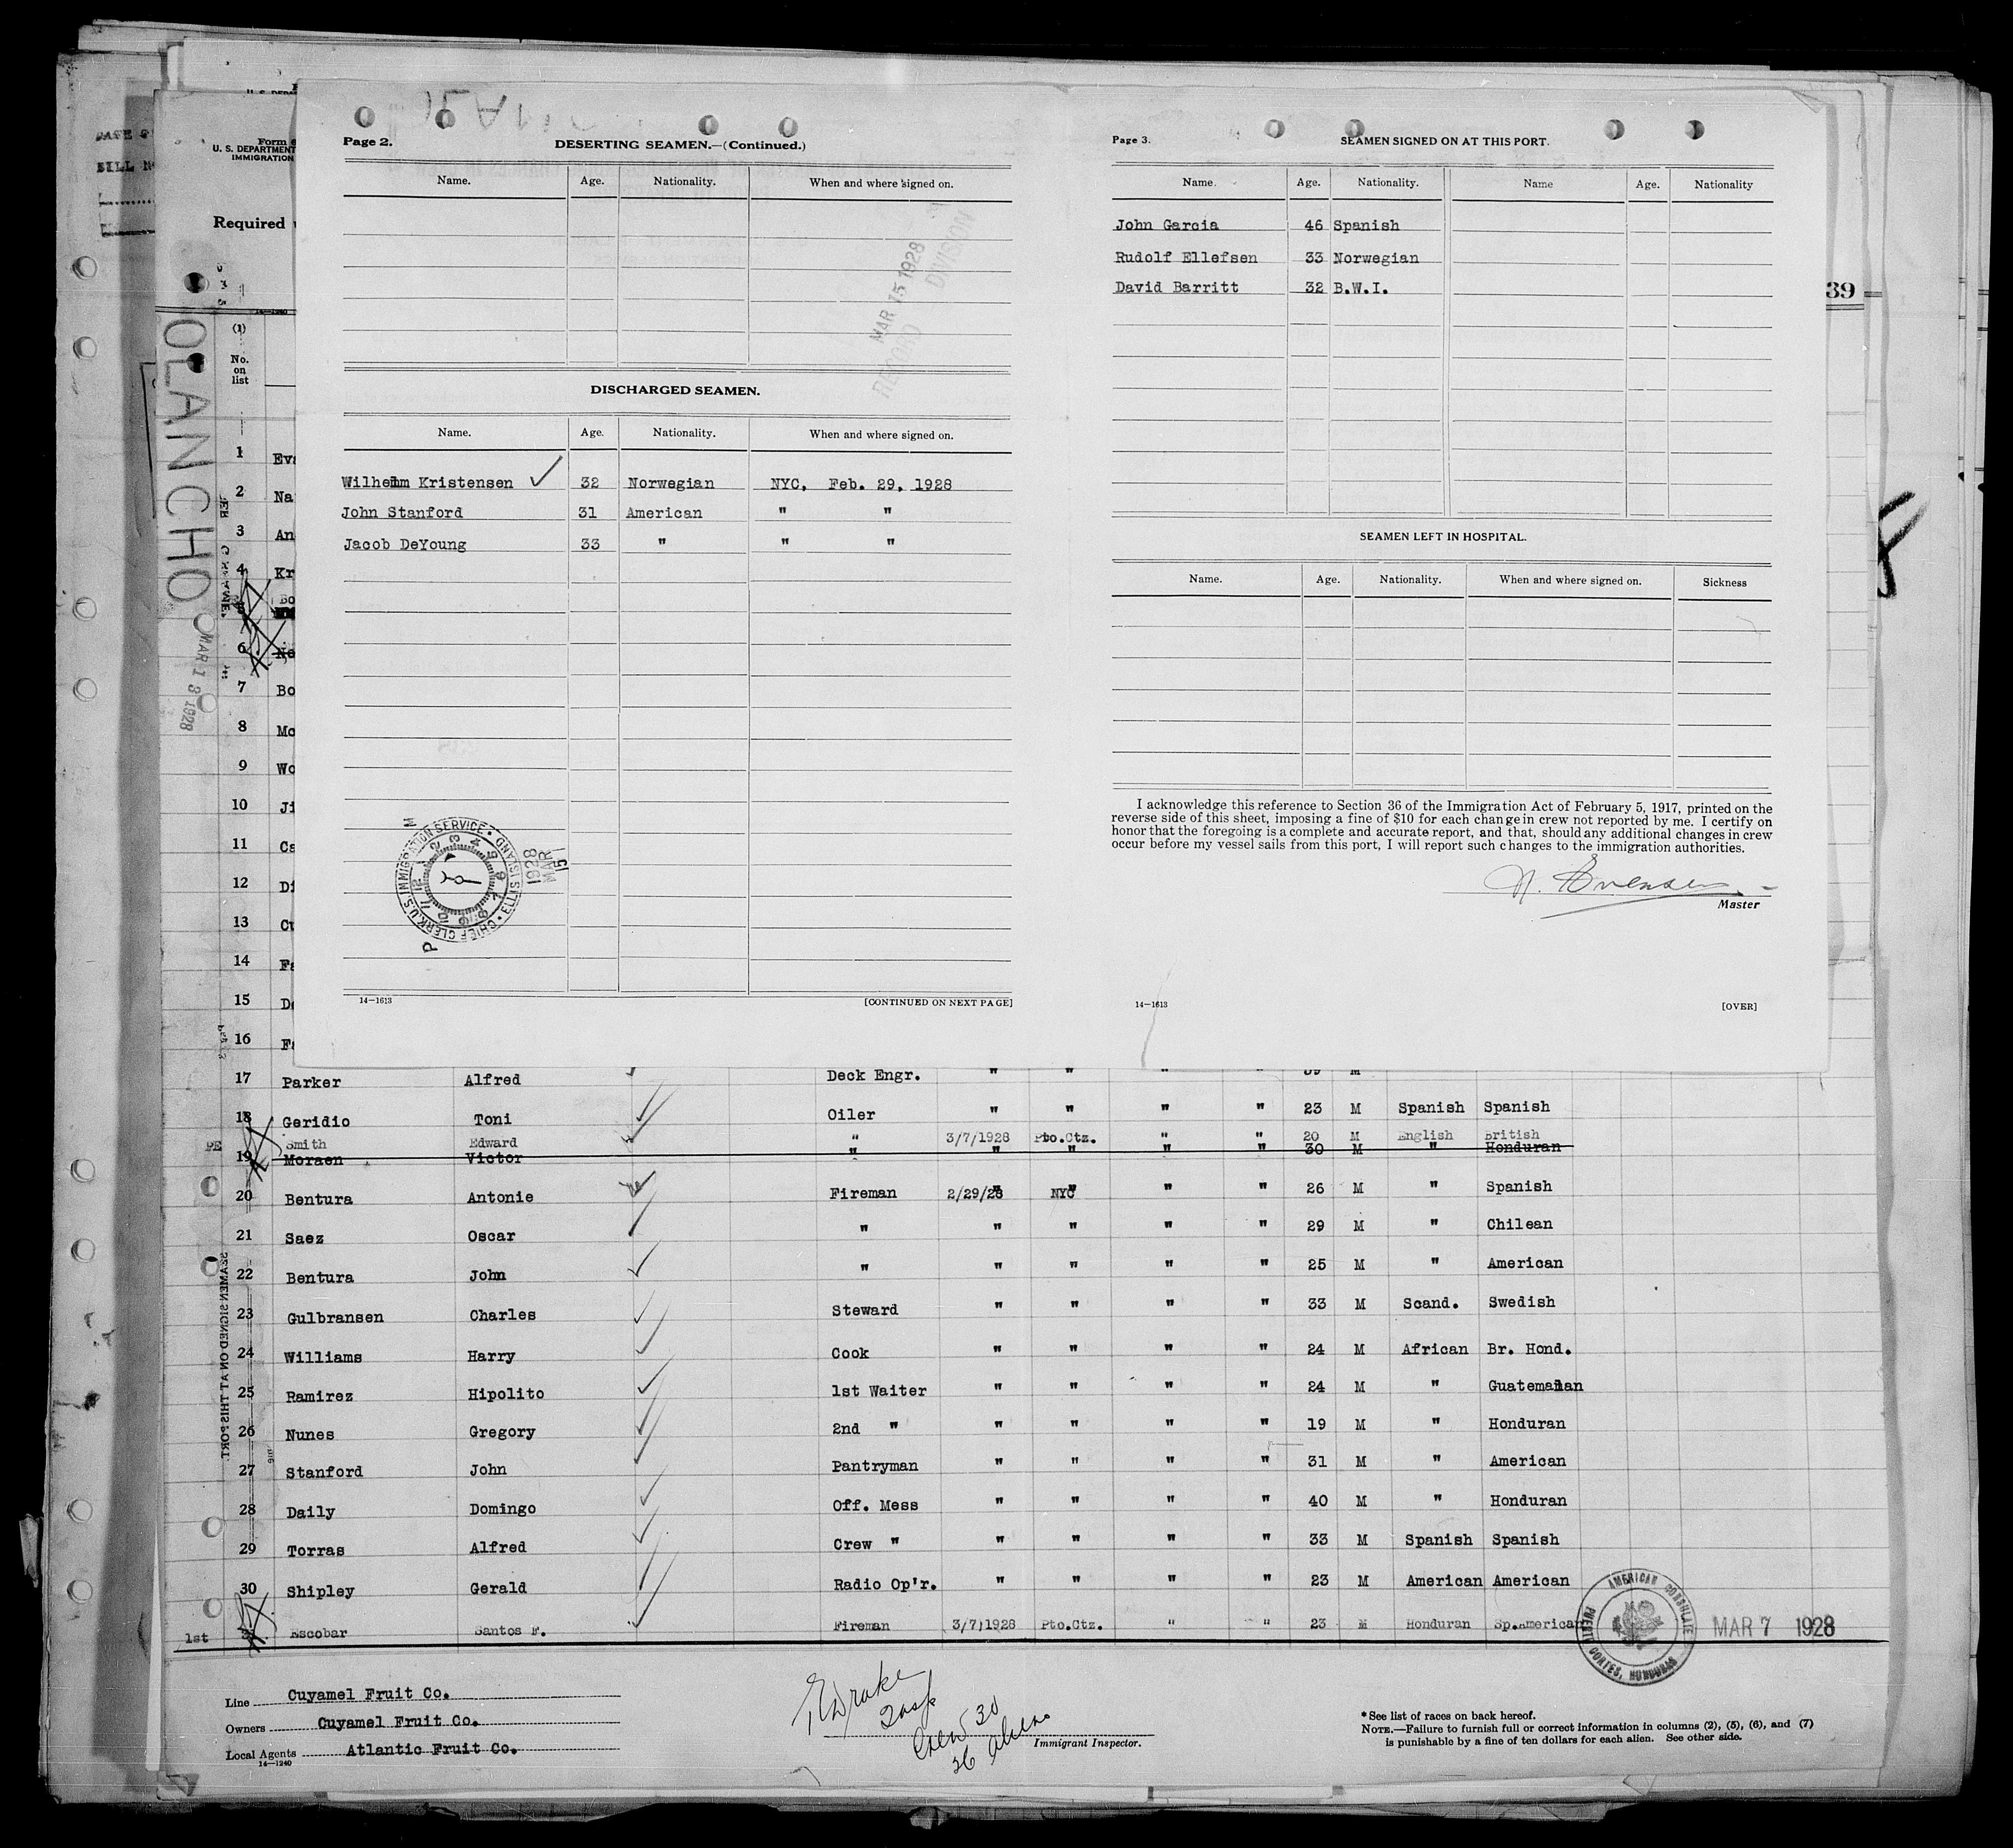 Page 2.
DESERTING SEAMEN.—(Continued.)
Name. Age. Nationality. When and where signed on.
MAR 15 1928
RECORD DIVISION
DISCHARGED SEAMEN.
Name. Age. Nationality. When and where signed on.
Wilhelm Kristensen 32 Norwegian NYC, Feb. 29, 1928
John Stanford 31 American " "
Jacob DeYoung 33 " " "
CHIEF CLERK U.S. IMMIGRATION SERVICE • ELLIS ISLAND
MAR 15 1928
14—1613 [CONTINUED ON NEXT PAGE]
Page 3.
SEAMEN SIGNED ON AT THIS PORT.
Name. Age. Nationality. Name Age. Nationality
John Garcia 46 Spanish
Rudolf Ellefsen 33 Norwegian
David Barritt 32 B.W.I.
SEAMEN LEFT IN HOSPITAL.
Name. Age. Nationality. When and where signed on. Sickness
I acknowledge this reference to Section 36 of the Immigration Act of February 5, 1917, printed on the
reverse side of this sheet, imposing a fine of $10 for each change in crew not reported by me. I certify on
honor that the foregoing is a complete and accurate report, and that, should any additional changes in crew
occur before my vessel sails from this port, I will report such changes to the immigration authorities.
Master
14—1613 [OVER]
Form
U. S. DEPARTMENT
IMMIGRATION
Required
14—1240
39
OLANCHO
MAR 13 1928
(1)
No.
on
list
1 Eva
2 Na
3 An
4 Kr
Bo
5
6 No
7 Bo
8 Mo
9 Wo
10 Ji
11 Ca
12 Di
13 Cu
14 Fa
15 De
16 Fa
17 Parker Alfred Deck Engr. " " " " 39 M
18 Geridio Toni Oiler " " " " 23 M Spanish Spanish
Smith Edward " 3/7/1928 Pto.Ctz. " " 20 M English British
19 Moraen Victor " " " " " 30 M " Honduran
20 Bentura Antonie Fireman 2/29/28 NYC " " 26 M " Spanish
21 Saez Oscar " " " " " 29 M " Chilean
22 Bentura John " " " " " 25 M " American
23 Gulbransen Charles Steward " " " " 33 M Scand. Swedish
24 Williams Harry Cook " " " " 24 M African Br. Hond.
25 Ramirez Hipolito 1st Waiter " " " " 24 M " Guatemalan
26 Nunes Gregory 2nd " " " " " 19 M " Honduran
27 Stanford John Pantryman " " " " 31 M " American
28 Daily Domingo Off. Mess " " " " 40 M " Honduran
29 Torras Alfred Crew " " " " " 33 M Spanish Spanish
30 Shipley Gerald Radio Op'r. " " " " 23 M American American
1st 31 Escobar Santos F. Fireman 3/7/1928 Pto.Ctz. " " 23 M Honduran Sp.American
SEAMEN SIGNED ON AT THIS PORT.
AMERICAN CONSULATE
PUERTO CORTES, HONDURAS
MAR 7 1928
Line Cuyamel Fruit Co.
Owners Cuyamel Fruit Co.
Local Agents Atlantic Fruit Co.
14—1240
Drake
Insp
Crew 30
26 Aliens
Immigrant Inspector.
*See list of races on back hereof.
NOTE.—Failure to furnish full or correct information in columns (2), (5), (6), and (7)
is punishable by a fine of ten dollars for each alien. See other side.